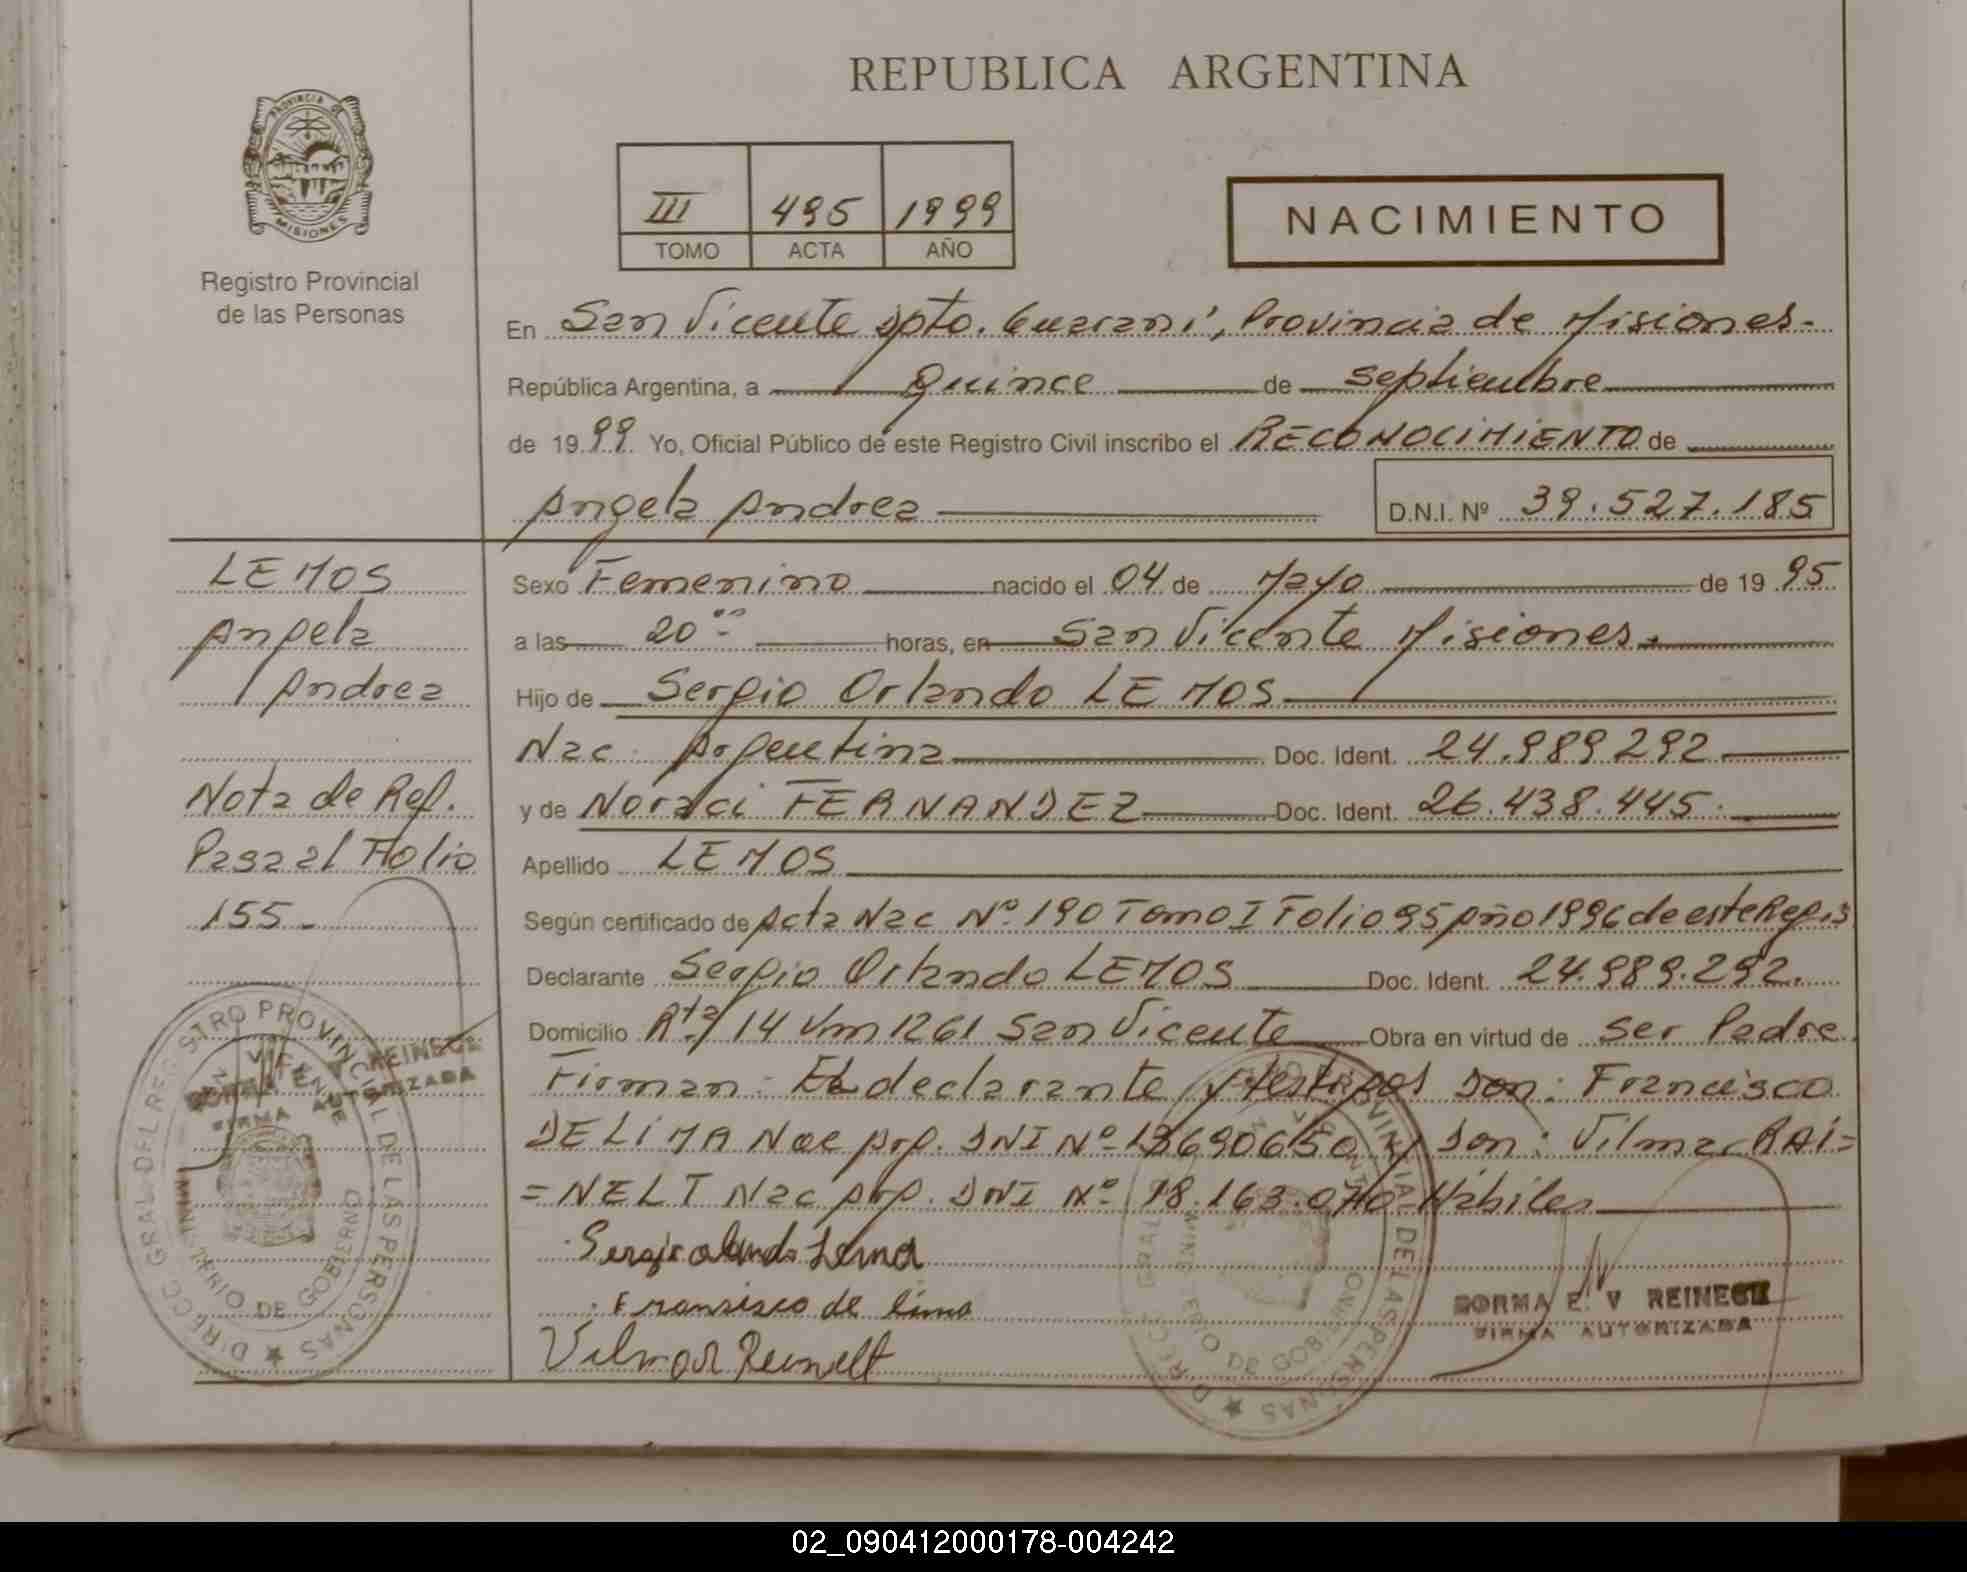 REPUBLICA ARGENTINA
PROVINCIA DE
MISIONES
Registro Provincial
de las Personas
III 495 1999
TOMO ACTA AÑO
NACIMIENTO
En San Vicente Dpto. Guaraní, Provincia de Misiones.
República Argentina, a Quince de Septiembre
de 1999. Yo, Oficial Público de este Registro Civil inscribo el RECONOCIMIENTO de
Angela Andrea D.N.I. Nº 39.527.185
LEMOS
Angela
Andrea
Nota de Ref.
Pasa al Folio
155.-
Sexo Femenino nacido el 04 de Mayo de 1995
a las 20 horas, en San Vicente Misiones.
Hijo de Sergio Orlando LEMOS
Nac. Argentina Doc. Ident. 24.989.292
y de Noraci FERNANDEZ Doc. Ident. 26.438.445.
Apellido LEMOS
Según certificado de Acta Nac Nº 190 Tomo I Folio 95 Año 1996 de este Regis
Declarante Sergio Orlando LEMOS Doc. Ident. 24.989.292.
Domicilio Rta 14 Km 1261 San Vicente Obra en virtud de Ser Padre
Firman: El declarante y testigos Don: Francisco
DE LIMA Nac Arg. DNI Nº 13690650 y Don: Vilmar RAI=
=NELT Nac Arg. DNI Nº 18.163.070 Hábiles
Sergio orlando Lemo
Fransisco de lima
Vilmar Reinelt
NORMA E. V REINECK
FIRMA AUTORIZADA
NORMA E V REINECK
FIRMA AUTORIZADA
DIRECC GRAL DEL REGISTRO PROVINCIAL DE LAS PERSONAS
MINISTERIO DE GOBIERNO
DE LAS PERSONAS
MINISTERIO DE GOBIERNO
02_090412000178-004242